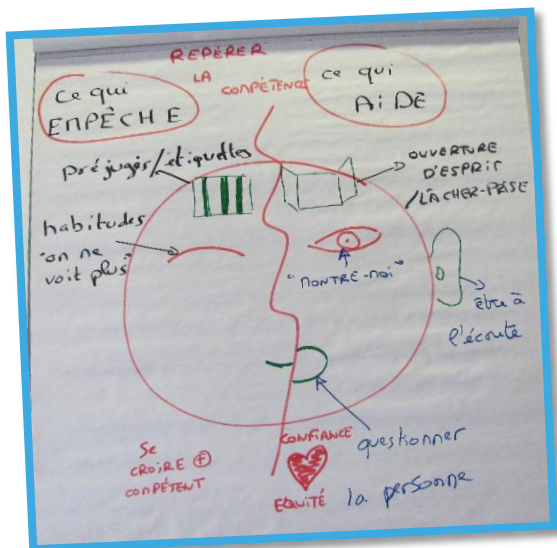 REPÉRER
LA
COMPÉTENCE
ce qui
EMPÊCHE
ce qui
AiDE
préjugés/étiquettes
OUVERTURE
D'ESPRIT
/LÂCHER-PRISE
habitudes
"on ne
voit plus"
"MONTRE-MOI"
être à
l'écoute
questionner
la personne
Se
CROIRE +
COMPÉTENT
CONFIANCE
EQUITÉ